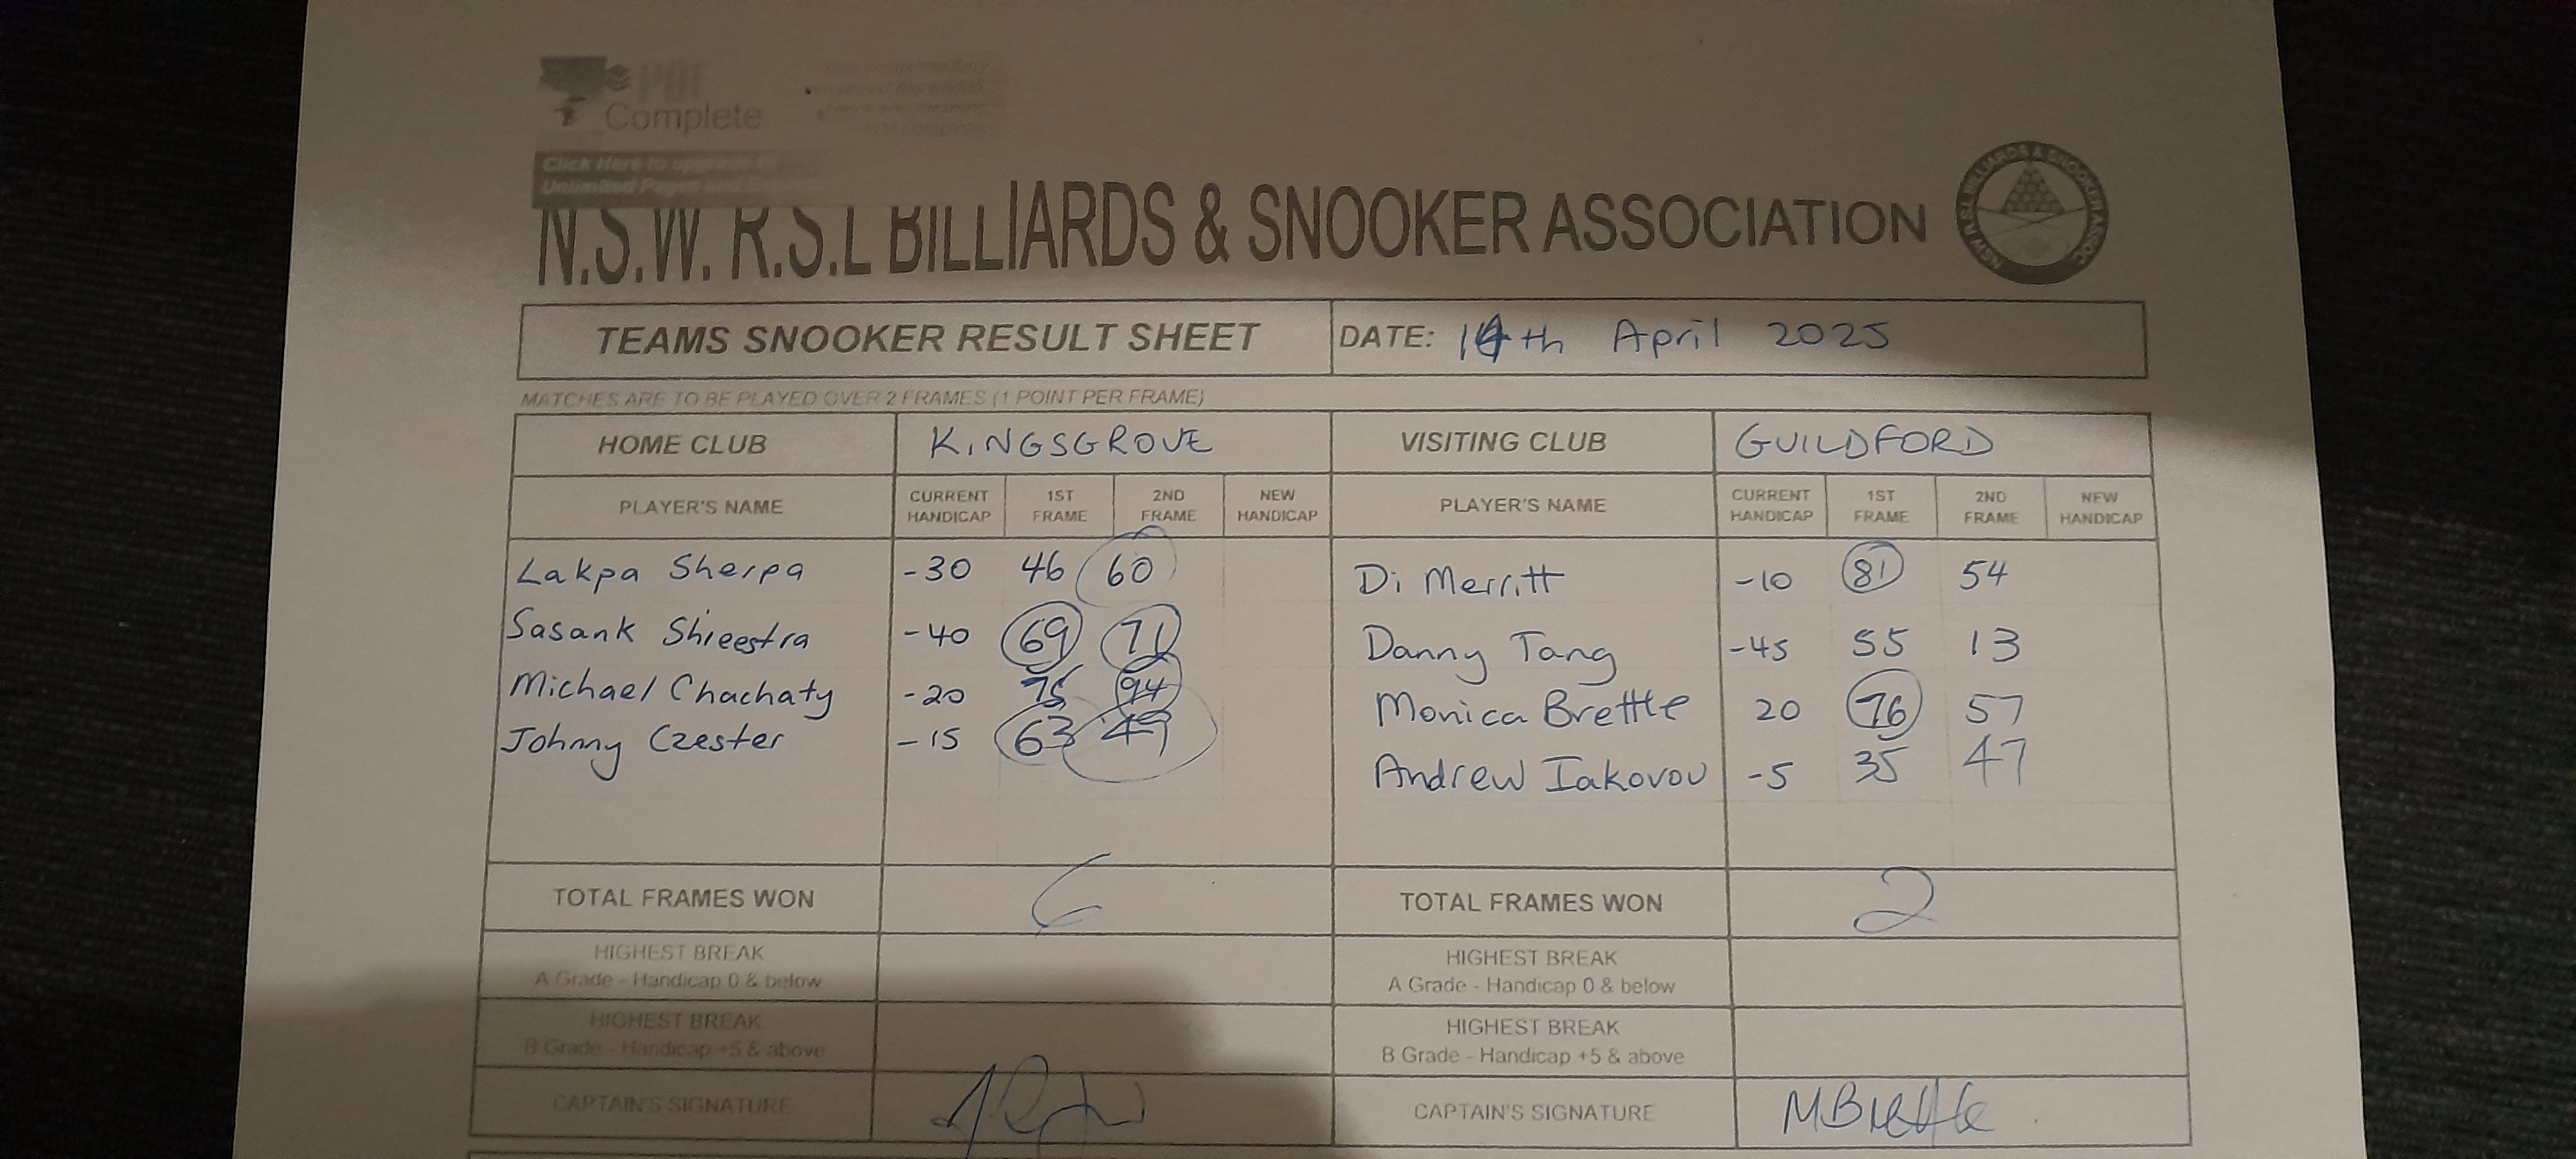 PDF
Complete
Click Here to upgrade to
Unlimited Pages and
N.S.W. R.S.L BILLIARDS & SNOOKER ASSOCIATION
NSW R.S.L BILLIARDS & SNOOKER ASSOC
TEAMS SNOOKER RESULT SHEET DATE: 14th April 2025
MATCHES ARE TO BE PLAYED OVER 2 FRAMES (1 POINT PER FRAME)
HOME CLUB KINGSGROVE VISITING CLUB GUILDFORD
PLAYER'S NAME CURRENT HANDICAP 1ST FRAME 2ND FRAME NEW HANDICAP PLAYER'S NAME CURRENT HANDICAP 1ST FRAME 2ND FRAME NEW HANDICAP
Lakpa Sherpa -30 46 60 Di Merritt -10 81 54
Sasank Shreestra -40 69 71 Danny Tang -45 55 13
Michael Chachaty -20 75 94 Monica Brettle 20 76 57
Johnny Czester -15 63 49 Andrew Iakovou -5 35 47
TOTAL FRAMES WON 6 TOTAL FRAMES WON 2
HIGHEST BREAK HIGHEST BREAK
A Grade - Handicap 0 & below A Grade - Handicap 0 & below
HIGHEST BREAK HIGHEST BREAK
B Grade - Handicap +5 & above B Grade - Handicap +5 & above
CAPTAIN'S SIGNATURE CAPTAIN'S SIGNATURE MBrettle